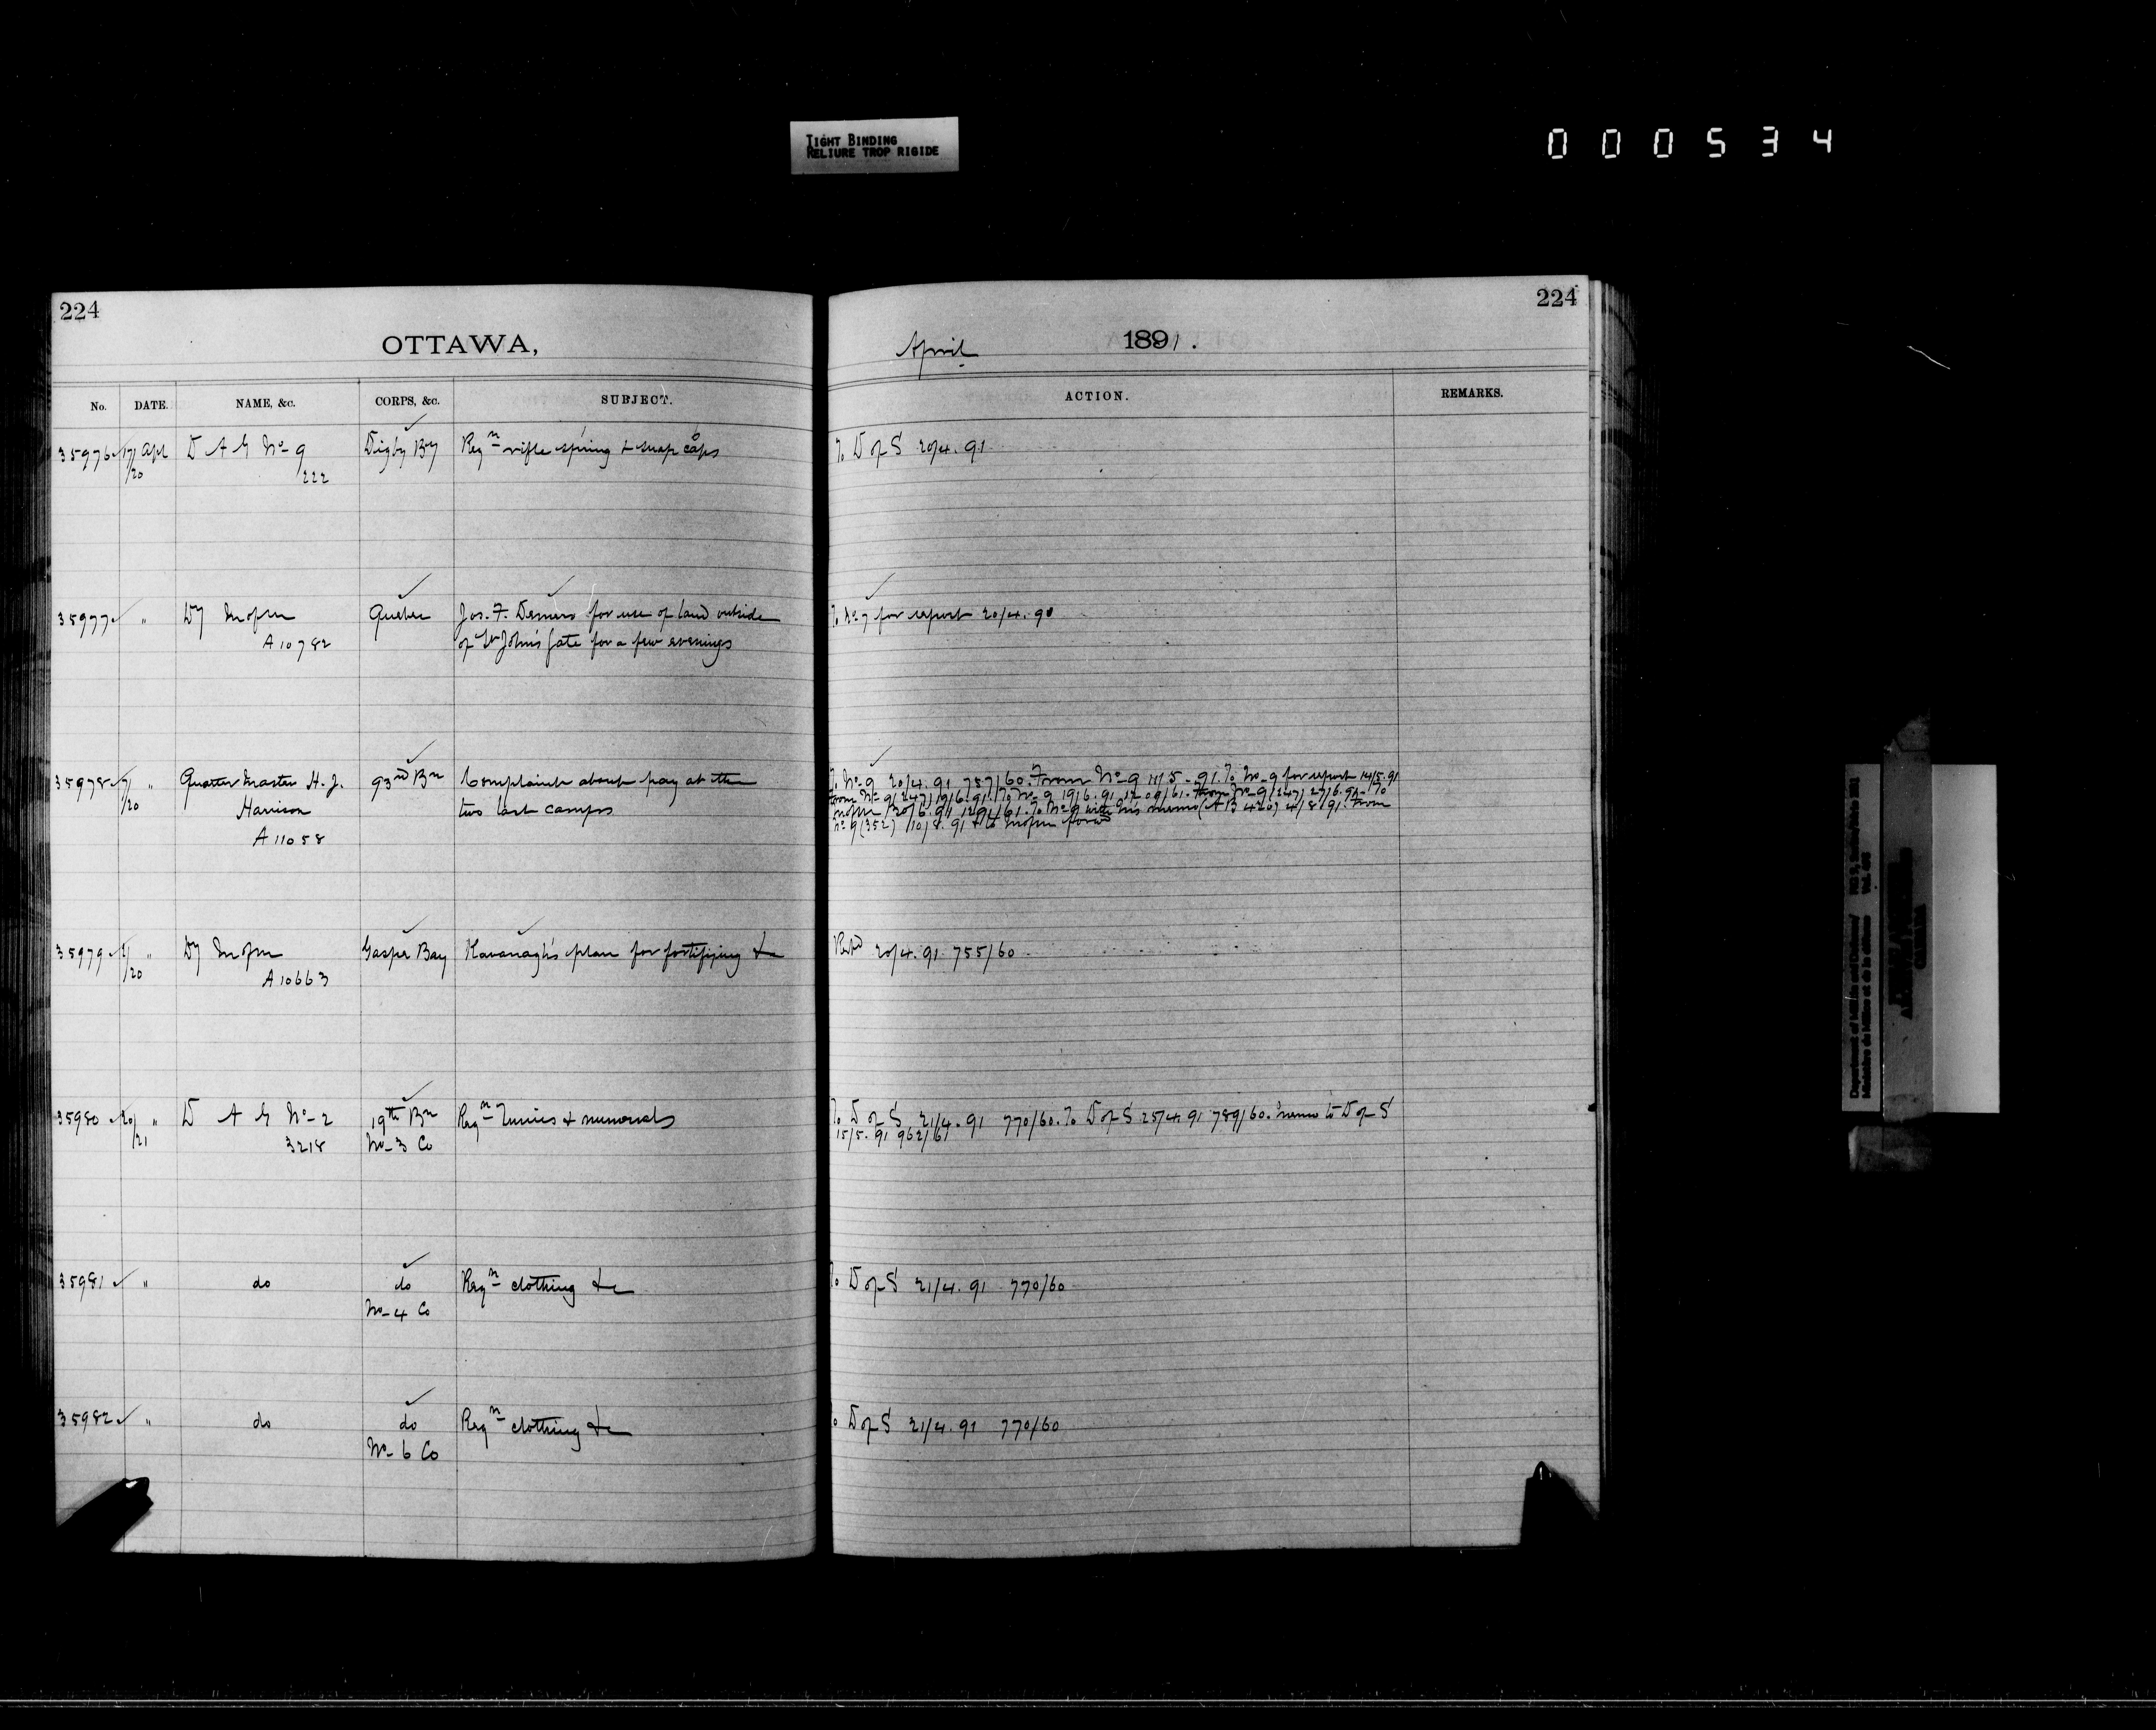 TIGHT BINDING
RELIURE TROP RIGIDE
000534
224
224
OTTAWA,
April 1891.
No. DATE. NAME, &c. CORPS, &c. SUBJECT. ACTION. REMARKS.
35976 17/20 Apl D A G No 9 Digby Bty Reqn rifle spring & snap caps To D of S 20/4.91
222
35977 " Dy Mofm Quebec Jos. F. Demers for use of land outside To No 7 for report 20/4.90
A 10782 of St John's Gate for a few evenings
35978 7/20 " Quarter Master H. J. 93rd Bn Complaint about pay at the To No 9 20/4.91 757/60. From No 9 5.91. To No 9 for report 14/5.91
Harrison two last camps From No 9 (247) 19/6.91. To No 9 19/6.91 1209/61. From No 9 (247) 27/6.91. To
A 11058 Mofm 1291/61. To No 9 with his memo (AB 420) 4/8.91. From
No 9 (352) 10/8.91 & to Mofm forwd
35979 /20 " Dy Mofm Gaspe Bay Kavanagh's plan for fortifying &c Retd 20/4.91 755/60
A 10663
35980 20/21 " D A G No 2 19th Bn Reqn Tunics & numerals To D of S 21/4.91 770/60. To D of S 25/4.91 789/60. Memo to D of S
3218 No 3 Co 15/5.91 962/61
35981 " do do Reqn clothing &c To D of S 21/4.91 770/60
No 4 Co
35982 " do do Reqn clothing &c To D of S 21/4.91 770/60
No 6 Co
Department of Militia and Defence/
Ministère de la Milice et de la défense